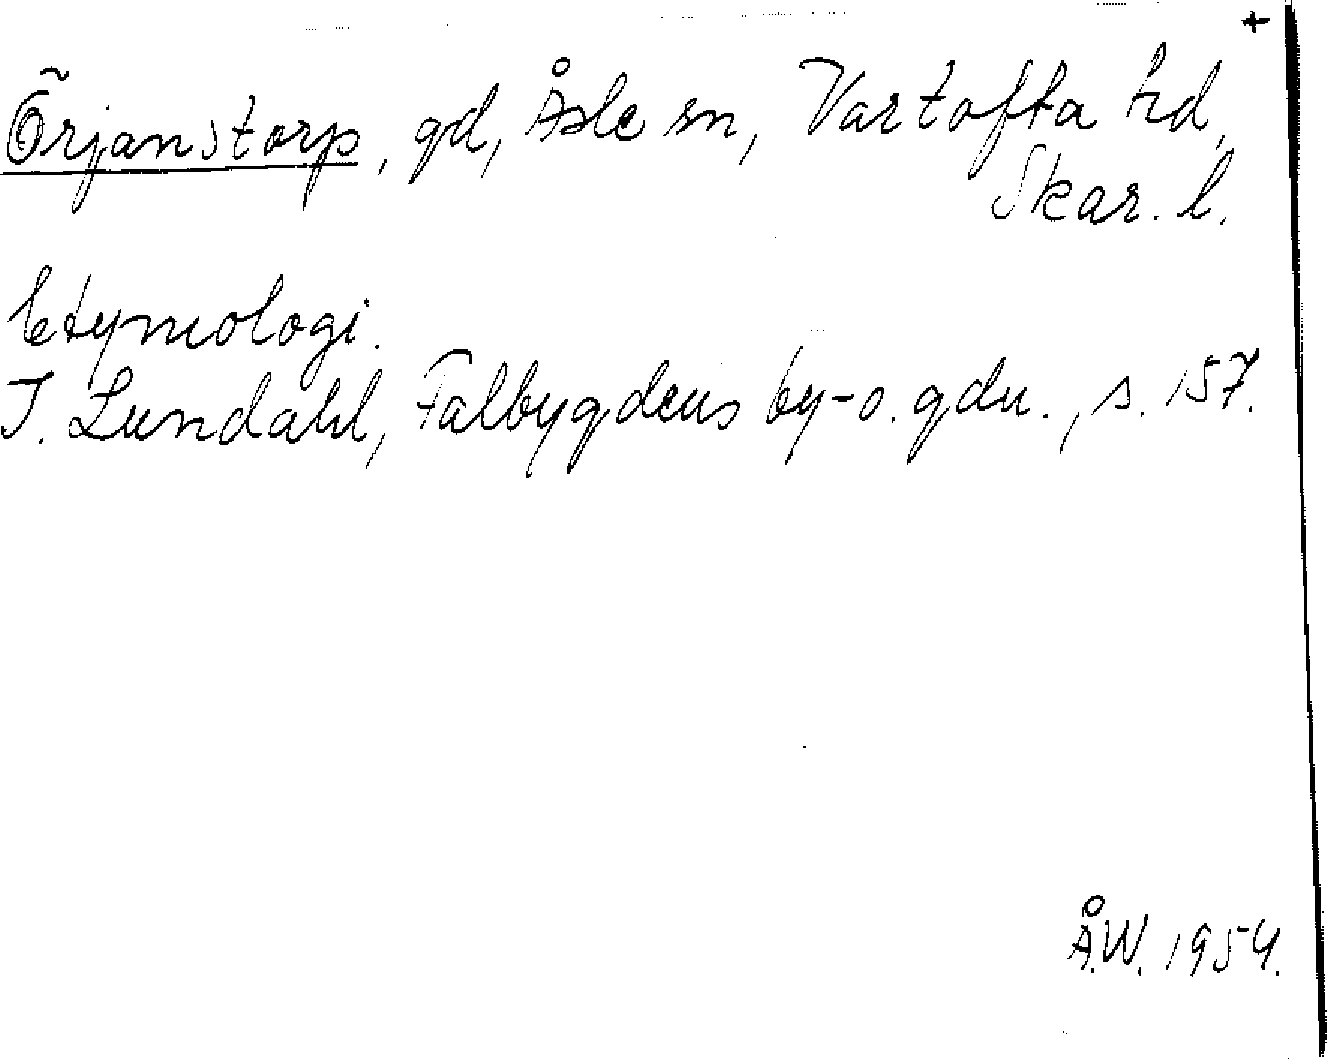 +
Örjanstorp, gd, Åsle sn, Vartofta hd,
Skar. l.
Etymologi.
I. Lundahl, Falbygdens by- o. gdn., s. 157.
Å.W. 1954.